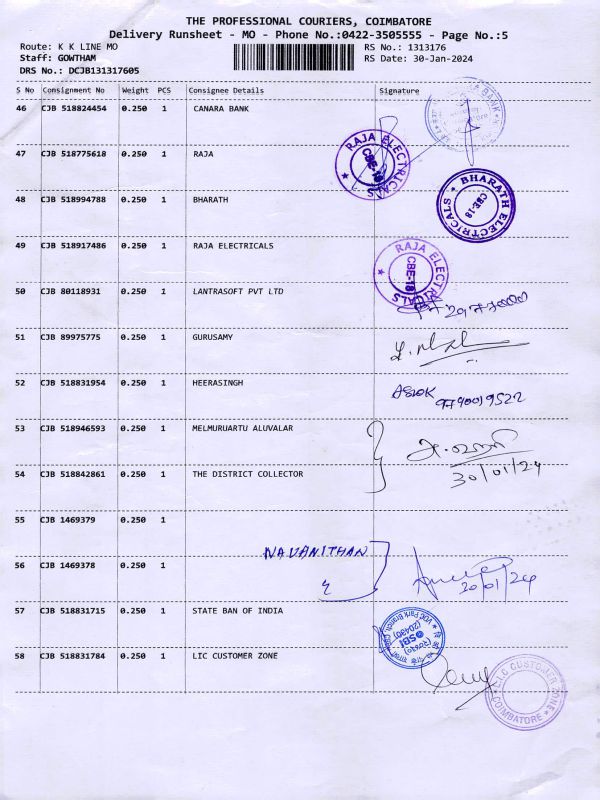 THE PROFESSIONAL COURIERS, COIMBATORE
Delivery Runsheet - MO - Phone No.:0422-3505555 - Page No.:5
Route: K K LINE MO
RS No.: 1313176
Staff: GOWTHAM
RS Date: 30-Jan-2024
DRS No.: DCJB131317605
S No Consignment No Weight PCS Consignee Details Signature
46 CJB 518824454 0.250 1 CANARA BANK
47 CJB 518775618 0.250 1 RAJA
RAJA ELECTRICALS
CBE-18
48 CJB 518994788 0.250 1 BHARATH
BHARATH ELECTRICALS
CBE-18
49 CJB 518917486 0.250 1 RAJA ELECTRICALS
RAJA ELECTRICALS
CBE-18
50 CJB 80118931 0.250 1 LANTRASOFT PVT LTD
51 CJB 89975775 0.250 1 GURUSAMY
52 CJB 518831954 0.250 1 HEERASINGH
ASHOK
53 CJB 518946593 0.250 1 MELMURUARTU ALUVALAR
54 CJB 518842861 0.250 1 THE DISTRICT COLLECTOR
30/01/24
55 CJB 1469379 0.250 1
NAVANITHAN
56 CJB 1469378 0.250 1
30/01/24
57 CJB 518831715 0.250 1 STATE BAN OF INDIA
SBI
(20430)
VOC Park Branch
58 CJB 518831784 0.250 1 LIC CUSTOMER ZONE
LIC CUSTOMER ZONE
COIMBATORE